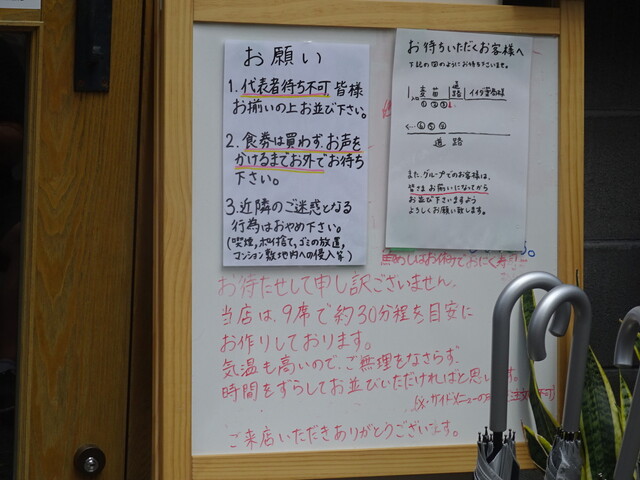 お願い
1.代表者待ち不可 皆様
お揃いの上お並び下さい。
2.食券は買わず、お声を
かけるまでお外でお待ち
下さい。
3.近隣のご迷惑となる
行為はおやめ下さい。
(喫煙,ポイ捨て,ゴミの放置,
マンション敷地内への侵入等)
お待ちいただくお客様へ
下記の図のようにお待ち下さいませ。
麦苗
道路
①②③
←…⑥⑤④
道路
また、グループでのお客様は、
皆さまお揃いになってから
お並び下さいますよう
よろしくお願い致します。
お待たせして申し訳ございません。
当店は、9席で約30分程を目安に
お作りしております。
気温も高いので、ご無理をなさらず、
時間をずらしてお並びいただければと思います。
ご来店いただきありがとうございます。